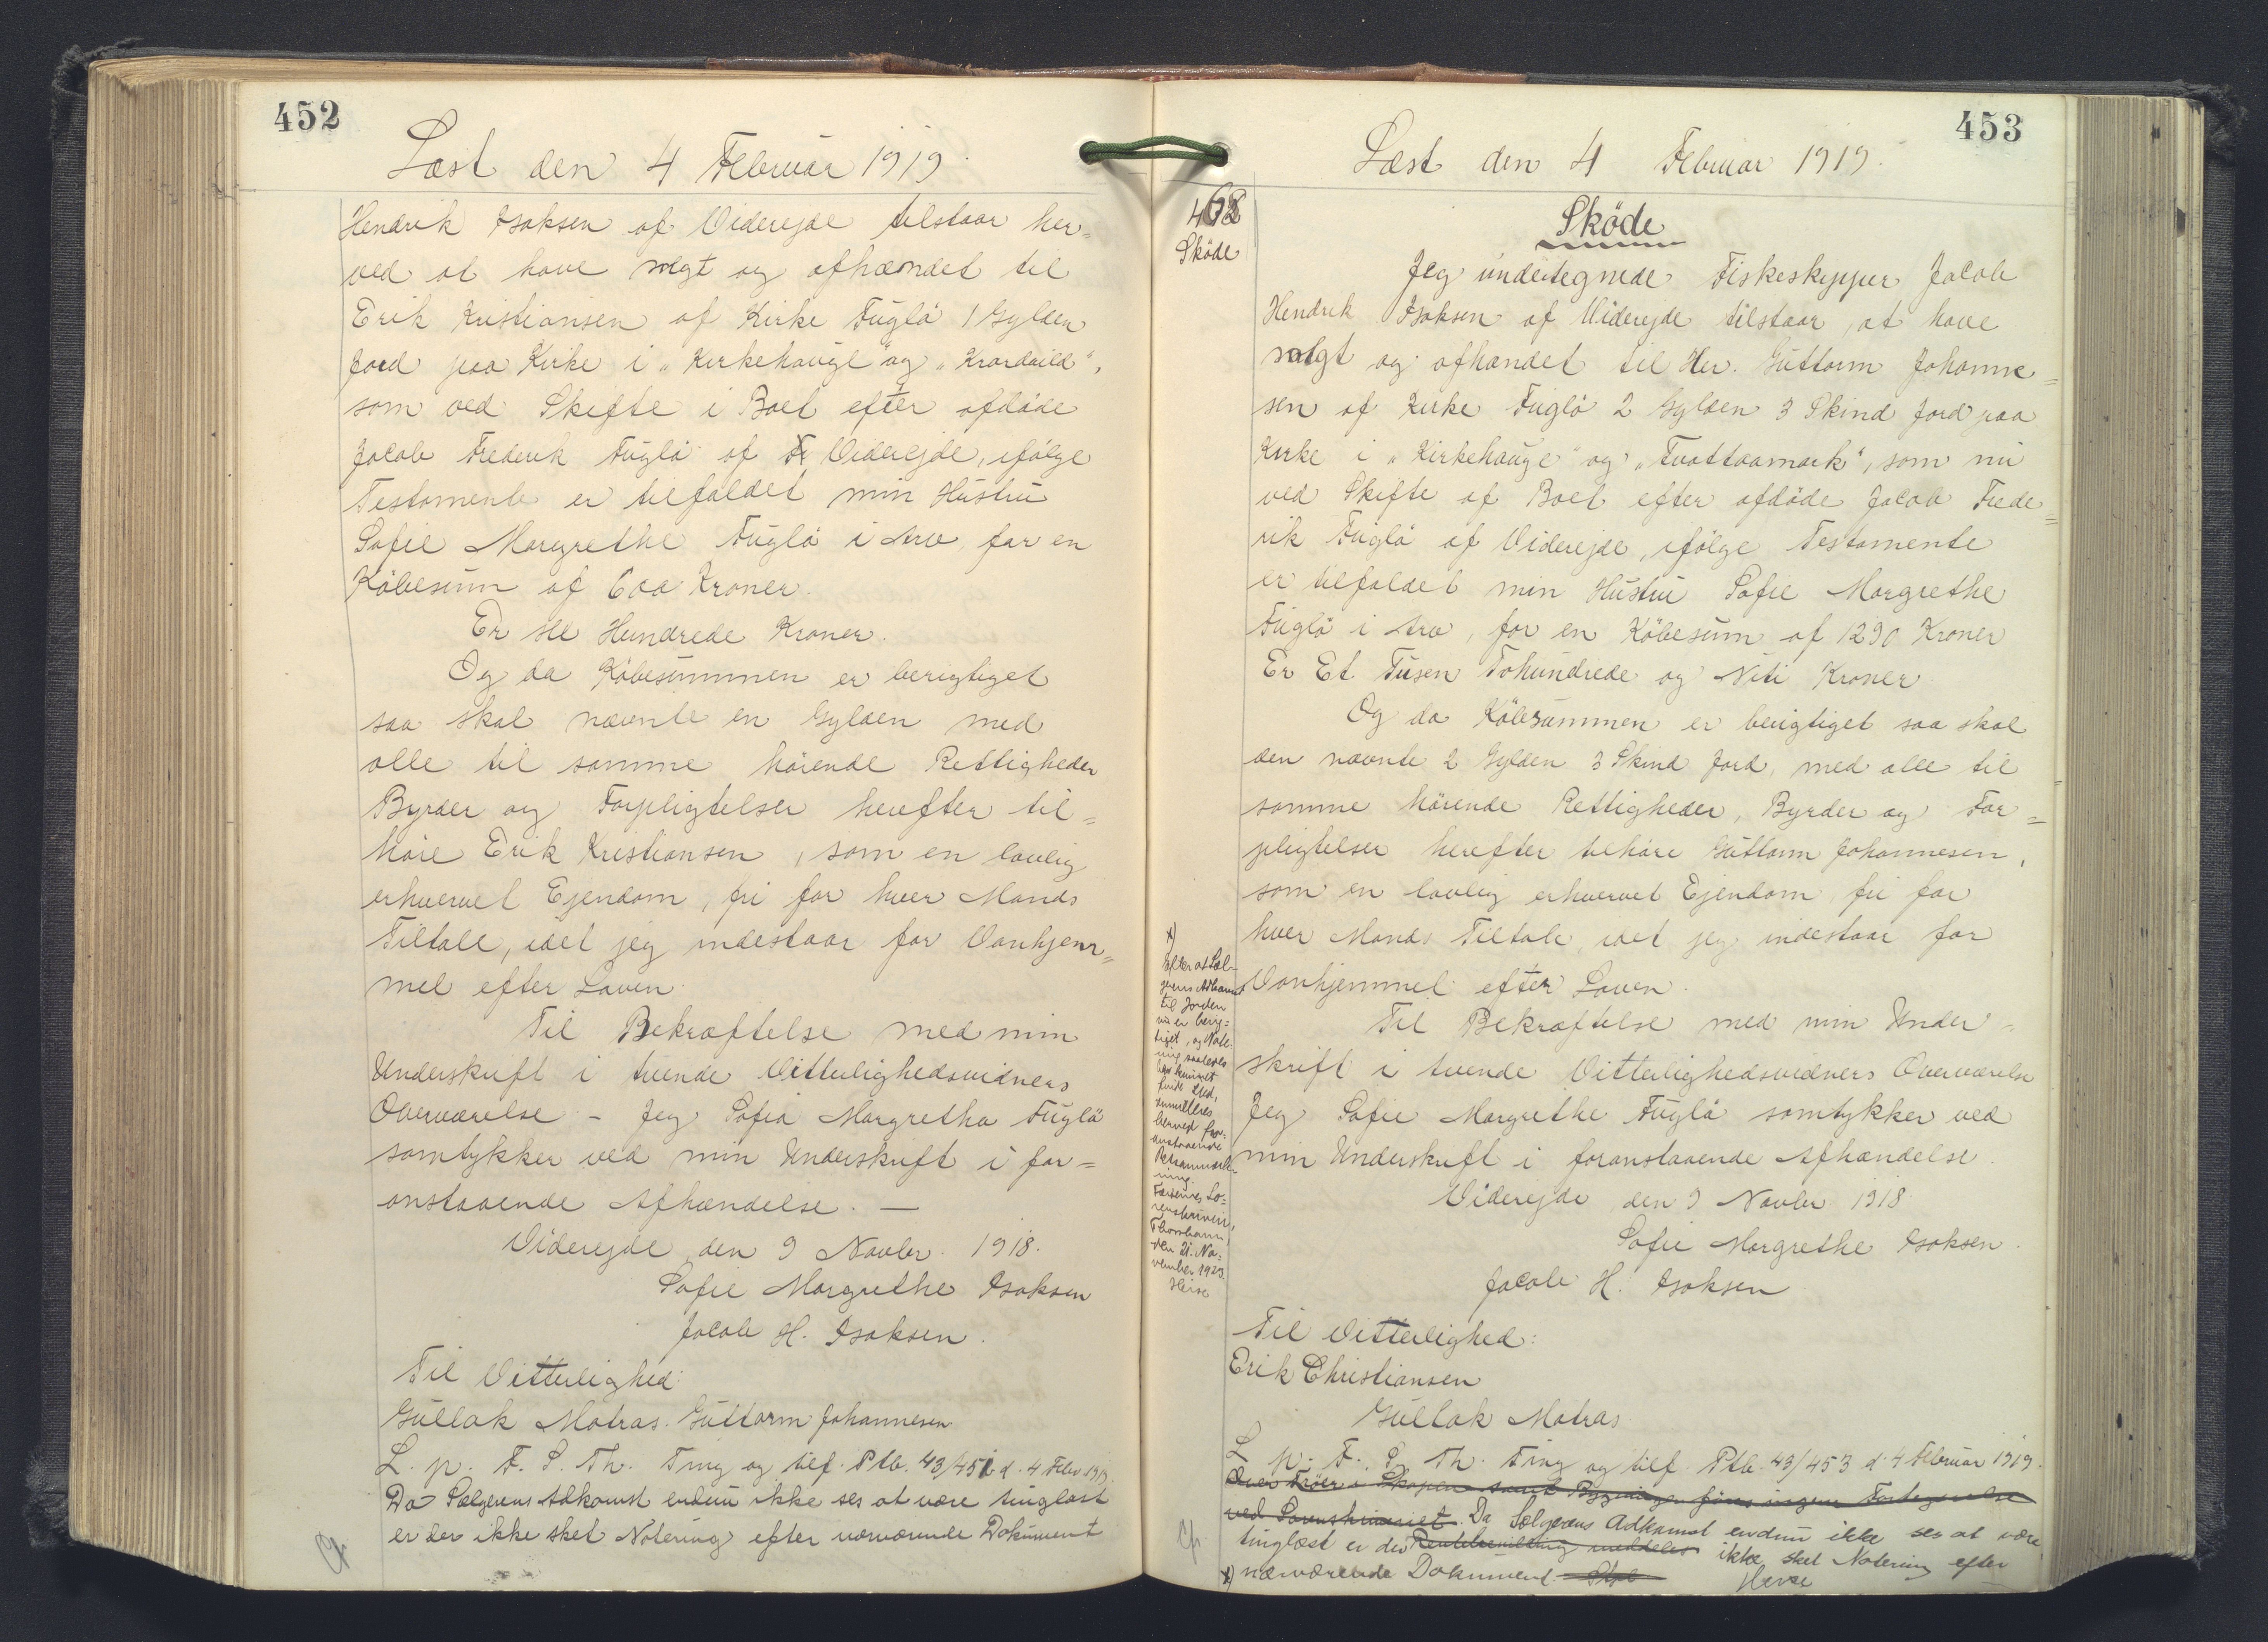 452
Læst den 4 Februar 1919.
Hendrik Isaksen af Viderejde tilstaar her=
ved at have solgt og afhændet til
Erik Kristiansen af Kirke Fuglö 1 Gylden
Jord paa Kirke i „Kirkehauge" og „Krardaild",
som ved Skifte i Boet efter afdöde
Jacob Frederik Fuglö af Viderejde, ifølge
Testamente er tilfaldet min Hustru
Sofie Margrethe Fuglö i Arv, for en
Köbesum af 600 Kroner.
Er sex Hundrede Kroner.
Og da Köbesummen er berigtiget
saa skal nævnte en Gylden med
alle til samme hörende Rettigheder
Byrder og Forpligtelser herefter til=
höre Erik Kristiansen, som en lovlig
erhvervet Ejendom, fri for hver Mands
Tiltale, idet jeg indestaar for Vanhjem=
mel efter Loven.
Til Bekræftelse med min
Underskrift i tvende Vitterlighedsvidners
Overværelse – Jeg Sofia Margretha Fuglö
samtykker ved min Underskrift i for=
anstaaende Afhændelse. —
Viderejde, den 9 Novbr. 1918.
Sofie Margrethe Isaksen
Jacob H. Isaksen.
Til Vitterlighed:
Gullak Matras. Guttorm Johannesen
L. p. F. S. Th. Ting og tilf. Ptb. 43/451 d. 4 Febr 1919.
Da Sælgerens Adkomst endnu ikke ses at være tinglæst
er der ikke sket Notering efter nærværende Dokument
453
Læst den 4 Februar 1919.
468
Sköde
Sköde
Jeg undertegnede Fiskeskipper Jacob
Hendrik Isaksen af Viderejde tilstaar, at have
solgt og afhændet til Her. Guttorm Johanne=
sen af Kirke Fuglö 2 Gylden 3 Skind Jord paa
Kirke i „Kirkehauge" og „Tvottaamark", som nu
ved Skifte af Boet efter afdöde Jacob Frede=
rik Fuglö af Viderejde, ifölge Testamente
er tilfaldet min Hustru Sofie Margrethe
Fuglö i Arv, for en Köbesum af 1290 Kroner
Er Et Tusen Tohundrede og Niti Kroner
Og da Köbesummen er berigtiget saa skal
den nævnte 2 Gylden 3 Skind Jord, med alle til
samme hörende Rettigheder, Byrder og For=
pligtelser herefter tilhöre Guttorm Johannesen,
som en lovlig erhvervet Ejendom, fri for
hver Mands Tiltale, idet jeg indestaar for
Vanhjemmel efter Loven.
Til Bekræftelse med min Under=
skrift i tvende Vitterlighedsvidners Overværelse
Jeg Sofie Margrethe Fuglö samtykker ved
min Underskrift i foranstaaende Afhændelse.
Viderejde den 9 Novbr 1918
Sofie Margrethe Isaksen.
Jacob H. Isaksen
Til Vitterlighed:
Erik Christiansen
Gullak Matras
L. p. F. S. Th. Ting og tilf Ptb. 43/453 d. 4 Februar 1919.
Over Tröer i Skopen samt Bygninger föres ingen Fortegnelse
ved Sorenskriveriet. Da Sælgerens Adkomst endnu ikke ses at være
tinglæst er der meddeles ikke sket Notering efter
x) nærværende Dokument.
Heise
x)
Efter at Sæl-
gerens Adkomst
til Jorden
nu er berig=
tiget, og Note-
ring saaledes
har kunnet
finde Sted,
annulleres
herved for-
anstaaende
Retsanmærk-
ning.
Færöernes So=
renskriveri,
Thorshavn,
den 21. No=
vember 1923.
Heise